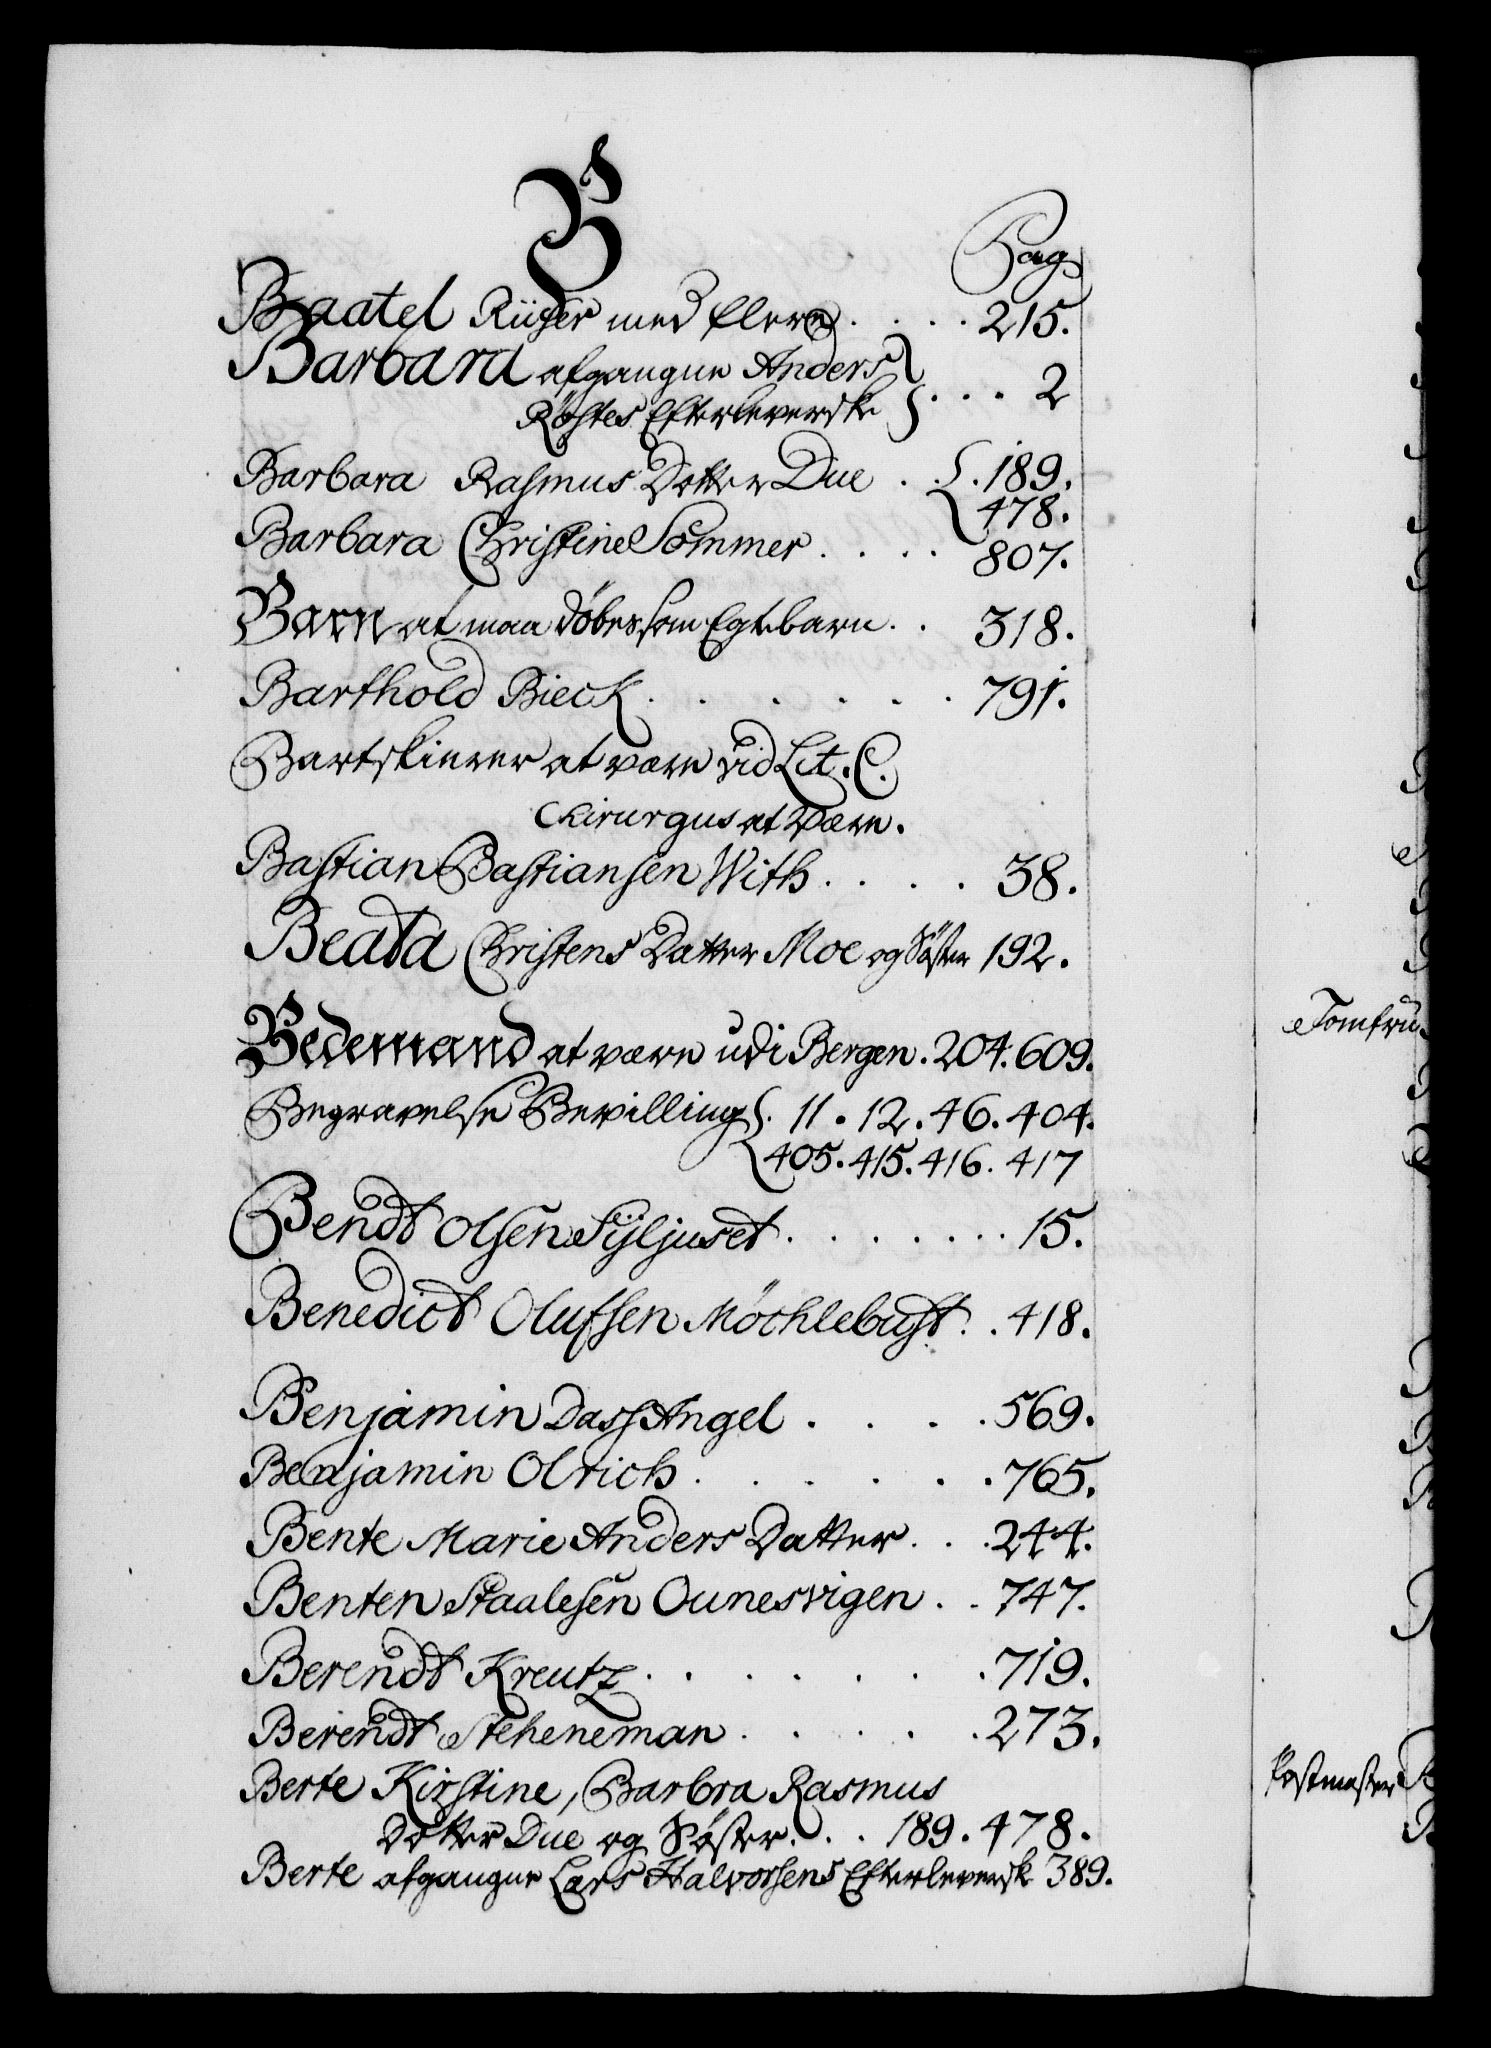 B
Pag
Baatel Riiser med flere . . . . 215.
Barbara afgangne Anders
Röstes Efterleverske } . . . 2
Barbara Rasmus Dotter Due . . { 189.
478.
Barbara Christine Sommer . . . . 807.
Barn at maa döbes som Egtebarn . . 318.
Barthold Bieck . . . . . . 791.
Bartskierer at være vid Lit. C.
Chirurgus at Være.
Bastian Bastiansen With . . . . 38.
Beata Christens Datter Moe og Söster 192.
Bedemand at være udi Bergen . 204. 609.
Begravelse Bevilling { 11 . 12 . 46 . 404.
405 . 415 . 416 . 417
Bendt Olsen Sÿljuset . . . . . . . 15.
Benedict Olufsen Möchlebust . . 418.
Benjamin Dass Angel . . . . 569.
Benjamin Olrich . . . . . . 765.
Bente Marie Anders Datter . . . 244.
Benten Staalesen Ounesvigen . . 747.
Berendt Kreutz . . . . . . . 719.
Berendt Steheneman . . . . . 273.
Berte Kirstine, Barbra Rasmus
Dotter Due og Söster . . . 189 . 478.
Berte afgangne Lars Halvorsens Efterleversk 389.
Jomfru
Postmester